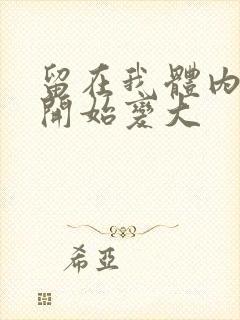 留在我體內
開始變大
希亞